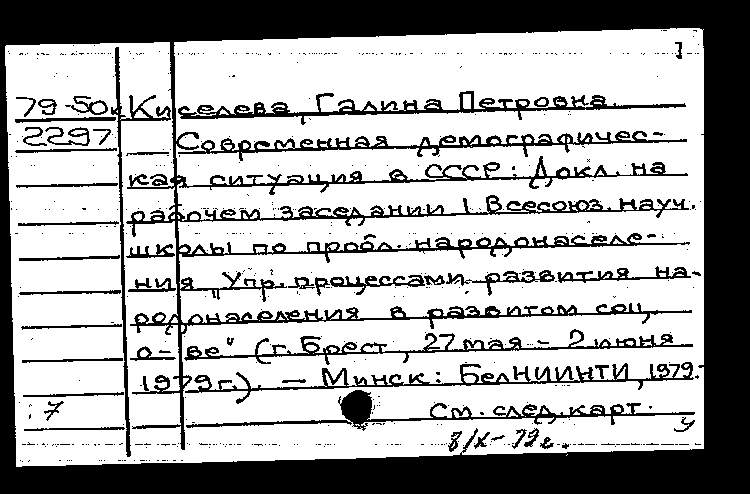 1
79-50к Киселева, Галина Петровна.
2297 Современная демографичес-
кая ситуация в СССР: Докл. на
рабочем заседании I Всесоюз. науч.
школы по пробл. народонаселе-
ния "Упр. процессами развития на-
родонаселения в развитом соц.
о-ве" (г. Брест, 27 мая - 2 июня
1979 г.). — Минск: БелНИИНТИ, 1979.-
:7 См. след. карт.
8/X-79г.